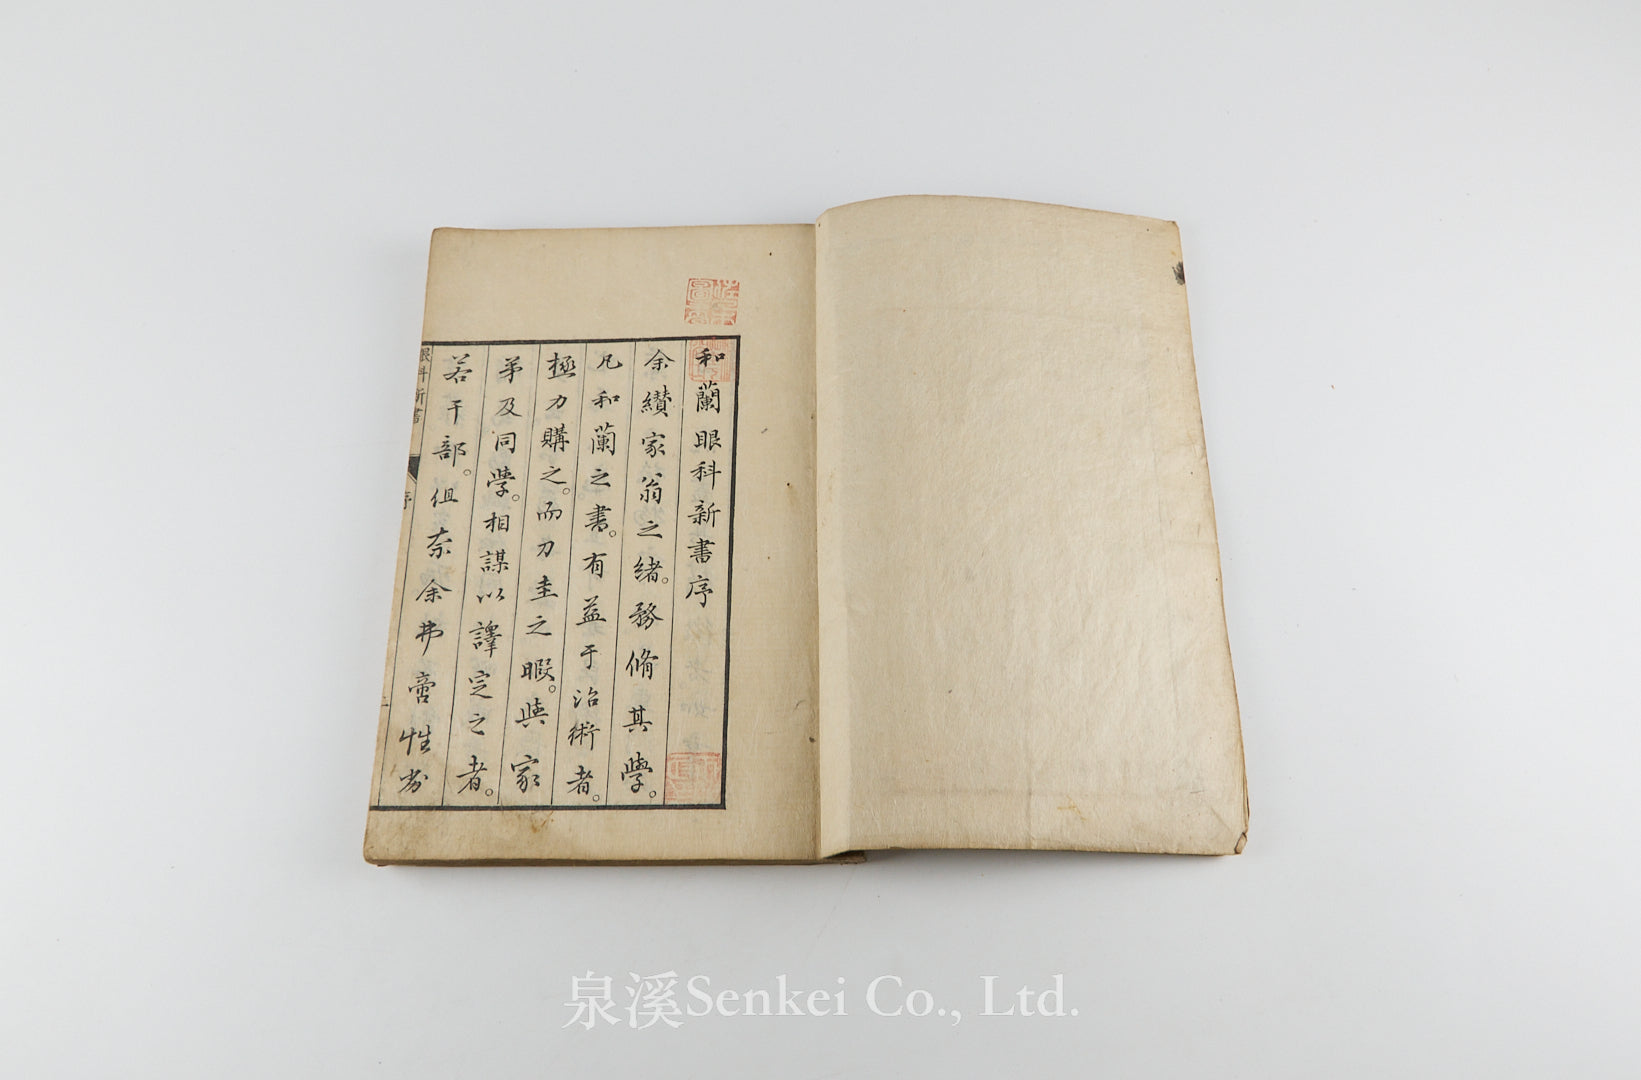 和蘭眼科新書序
余纉家翁之緒。務脩其學。
凡和蘭之書。有益于治術者。
極力購之。而刀圭之暇。與家
弟及同學。相謀以譯定之者。
若干部。但奈余弗啻性劣
眼科新書
序
泉溪Senkei Co., Ltd.